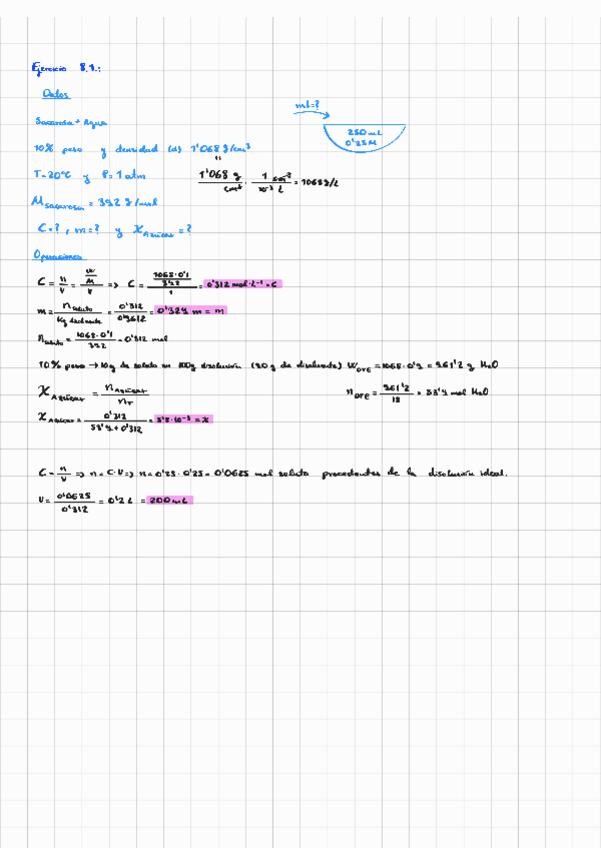 Ejercicio 8.1.:
Datos
ml=?
Sacarosa + Agua
250 mL
0'25M
10% peso y densidad (d) 1'068 g/cm³
T=20ºC y P=1 atm
1'068 g / cm³ · 1 cm³ / 10⁻³ L = 1068 g/L
M sacarosa = 342 g/mol
C=?, m=? y X Azúcar =?
Operaciones
C = n/V = (w/M)/V => C = (1068·0'1/342)/1 = 0'312 mol·L⁻¹ = C
m = n soluto / Kg disolvente = 0'312 / 0'9612 = 0'324 m = m
n soluto = 1068·0'1 / 342 = 0'312 mol
10% peso → 10g de soluto en 100g disolución (90 g de disolvente) W DTE = 1068·0'9 = 961'2 g H₂O
X Azúcar = n Azúcar / n T
n DTE = 961'2 / 18 = 53'4 mol H₂O
X Azúcar = 0'312 / 53'4+0'312 = 5'8·10⁻³ = X
C = n/V => n = C·V => n = 0'25·0'25 = 0'0625 mol soluto procedentes de la disolución ideal.
V = 0'0625 / 0'312 = 0'2 L = 200 mL